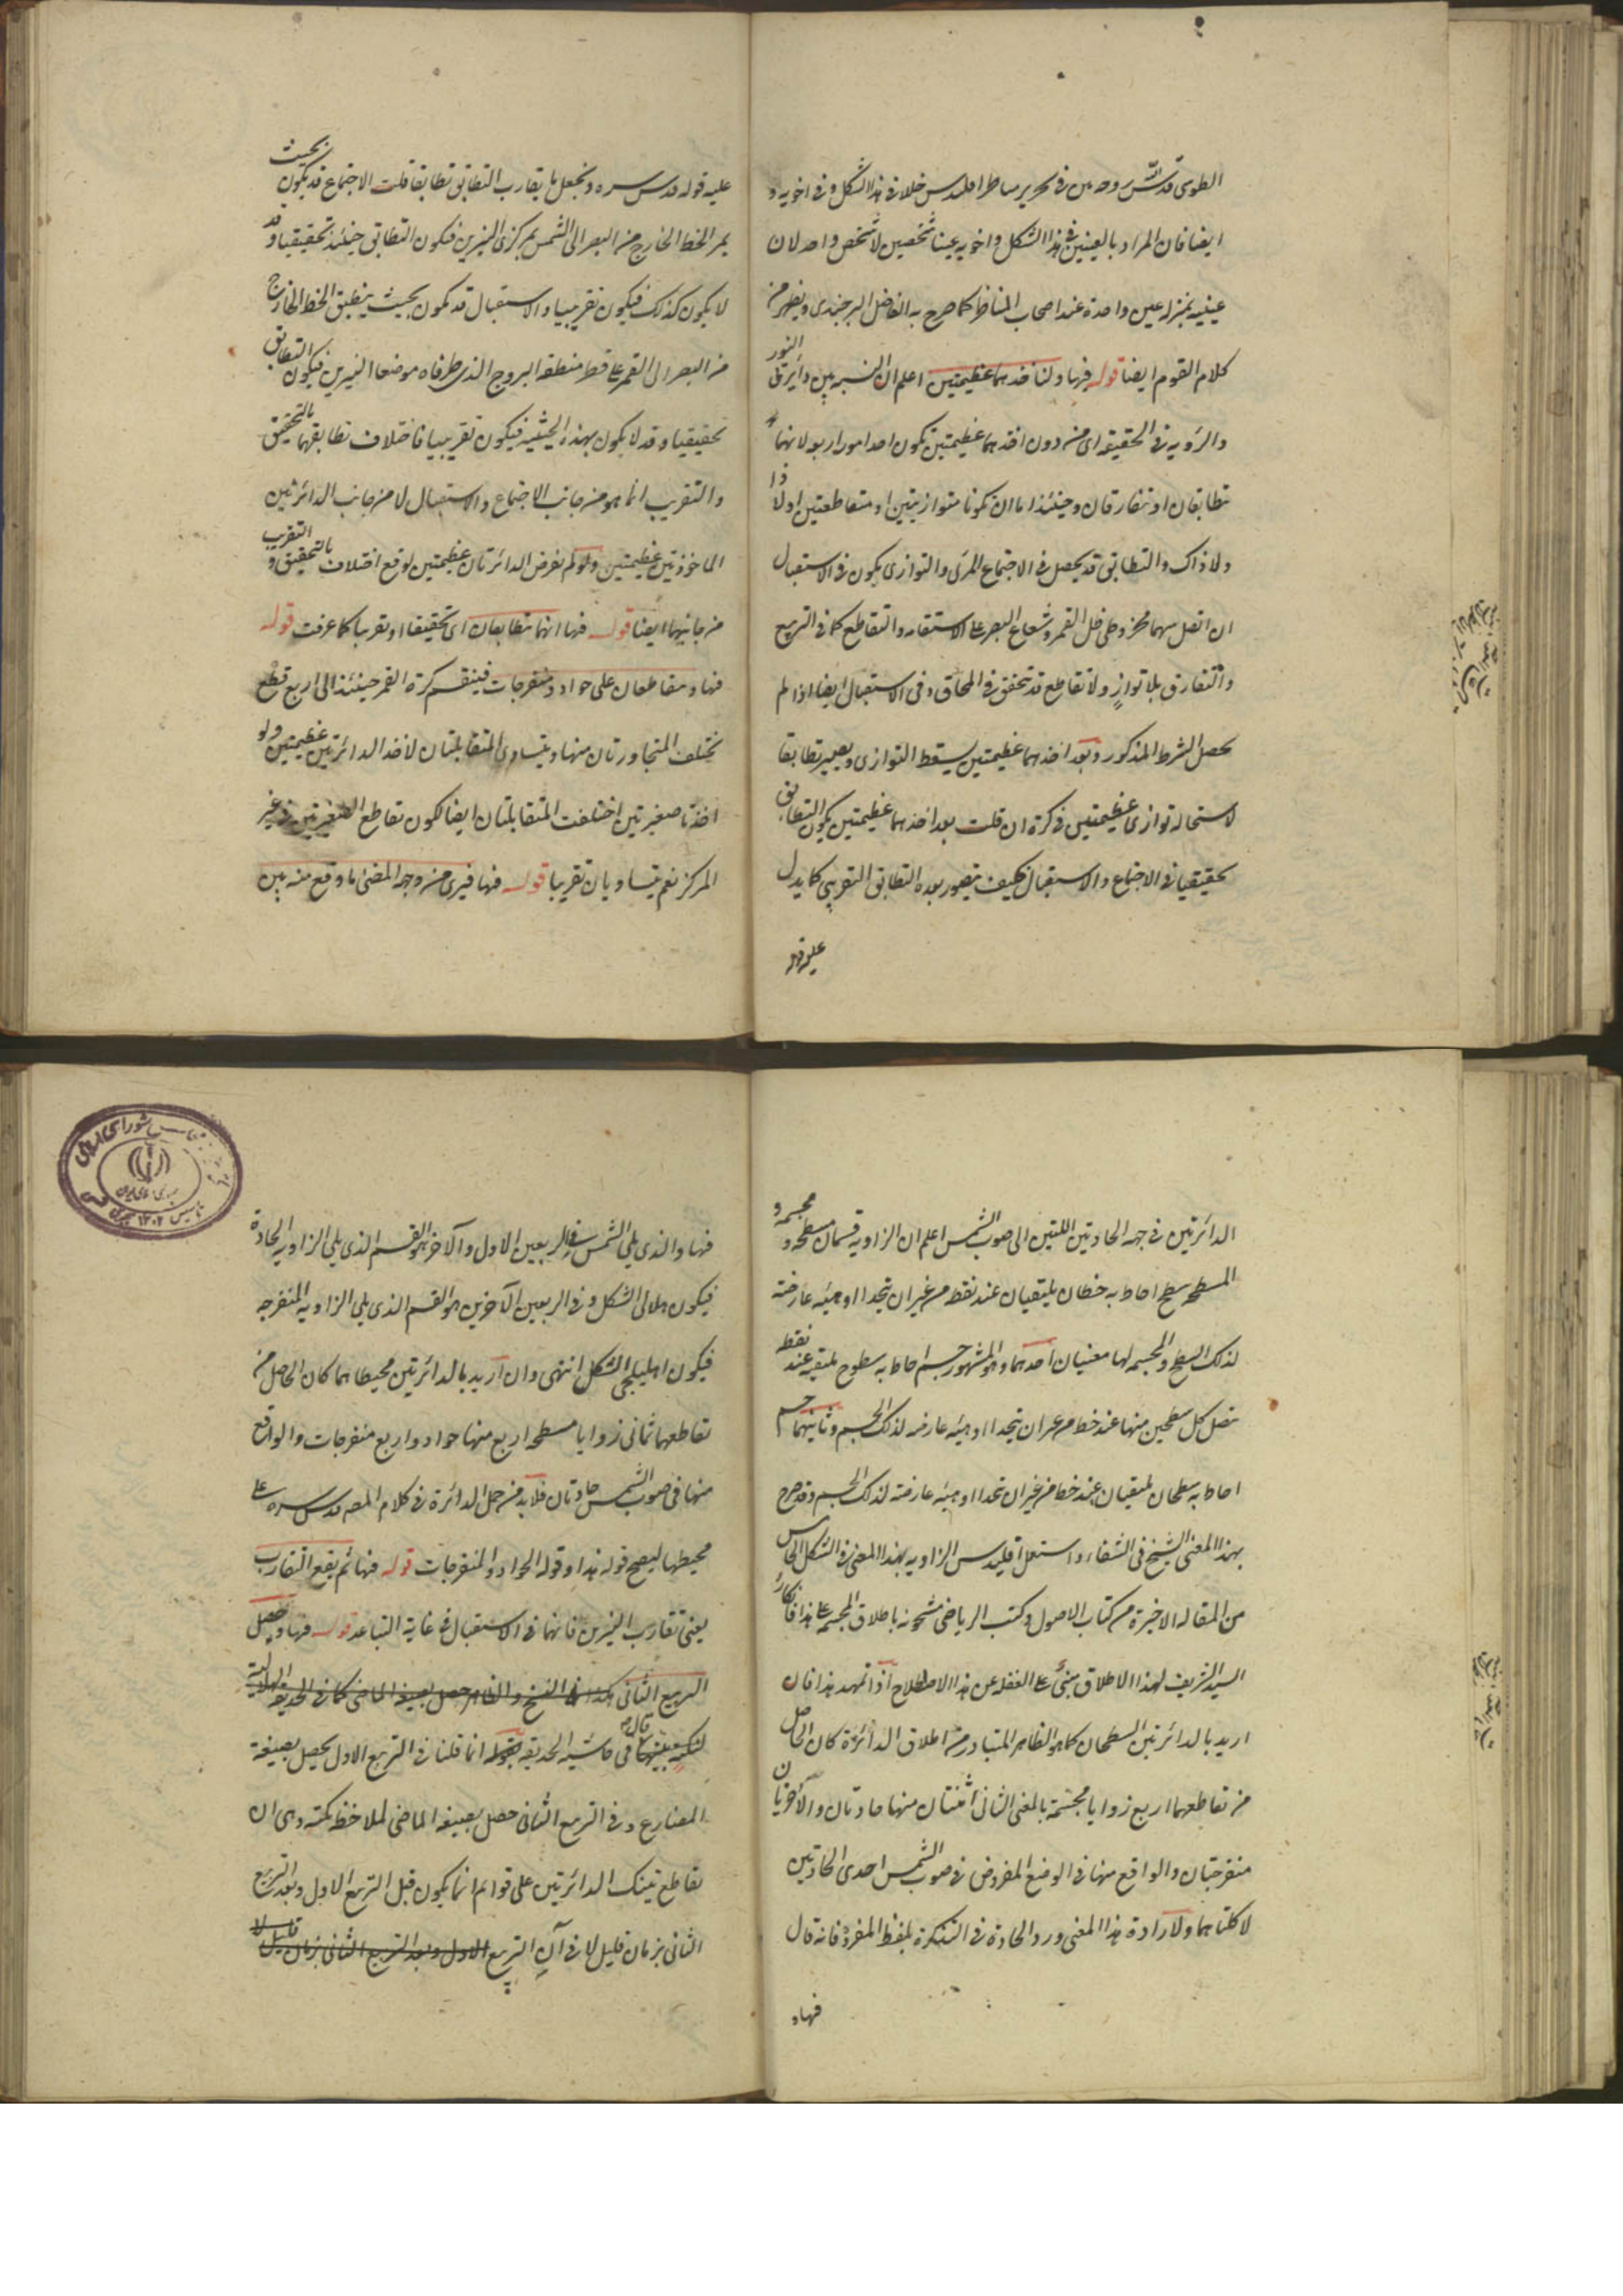 الطوسی قدس الله روحه من فی تحریر مناظر اقلیدس خلاف فی هذا الشکل و فی اخویه و
ایضا فان المراد بالعینین فی هذا الشکل و اخویه عینا شخصین لا شخص واحد لان
عینیه بمنزله عین واحدة عند اصحاب المناظر کما صرح به الفاضل البرجندی و یظهر من
کلام القوم ایضا قوله فیها و لناخذهما عظیمتین اعلم ان النسبه بین دائرتی النور
والرویه فی الحقیقه ای من دون اخذهما عظیمتین تکون احد امور اربعه لانهما
تطابقان او تتفارقان و حینئذ اما ان تکونا متوازیتین او متقاطعتین او لا ذا
ولا ذاک والتطابق قد یحصل فی الاجتماع المرئی والتوازی یکون فی الاستقبال
ان اتصل سهما مخروطی ظل القمر و شعاع البصر علی الاستقامه والتقاطع کما فی التربیع
والتفارق بلا توازٍ ولا تقاطع قد یتحقق فی المحاق و فی الاستقبال ایضا اذا لم
یحصل الشرط المذکور و بعد اخذهما عظیمتین یسقط التوازی و یصیر تطابقا
لاستحاله توازی عظیمتین فی کرة ان قلت بعد اخذهما عظیمتین یکون التطابق
حقیقیا فی الاجتماع والاستقبال فکیف یتصور بعده التطابق التقریبی کما یدل
علیه قوله
علیه قوله قدس سره و نجعل ما یقارب التطابق تطابقا قلت الاجتماع قد یکون بحیث
یمر الخط الخارج من البصر الی الشمس بمرکزی النیرین فیکون التطابق حینئذ تحقیقیا و قد
لا یکون کذلک فیکون تقریبیا والاستقبال قد یکون بحیث ینطبق الخط الخارج
من البصر الی القمر علی قطر منطقه البروج الذی طرفاه موضعا النیرین فیکون التطابق
تحقیقیا و قد لا یکون بهذه الحیثیه فیکون تقریبیا فاختلاف تطابقهما بالتحقیق
والتقریب انما هو من جانب الاجتماع والاستقبال لا من جانب الدائرتین
الماخوذتین عظیمتین و لو لم نفرض الدائرتان عظیمتین لوقع اختلاف بالتحقیق و التقریب
من جانبهما ایضا قوله فیها انهما تطابقان ای تحقیقا او تقریبا کما عرفت قوله
فیها و متقاطعان علی حواد و منفرجات فینقسم کرة القمر حینئذ الی اربع قطع
تختلف المتجاورتان منها و یتساوی المتقابلتان لاخذ الدائرتین عظیمتین و لو
اخذتا صغیرتین اختلفت المتقابلتان ایضا لکون تقاطع الصغیرتین فی غیر
المرکز نعم یتساویان تقریبا قوله فیها فیری من وجه المضئ ما وقع منه بین
الدائرتین فی جهه الحادتین اللتین الی صوب الشمس اعلم ان الزاویه قسمان مسطحه و مجسمه و
المسطحه سطح احاط به خطان یلتقیان عند نقطه من غیر ان یتحدا او هیئه عارضه
لذلک السطح والمجسمه لها معنیان احدهما و هو المشهور جسم احاط به سطوح ملتقیه عند نقطه
یتصل کل سطحین منها عند خط من غیر ان یتحدا او هیئه عارضه لذلک الجسم و ثانیهما جسم
احاط به سطحان ملتقیان عند خط من غیر ان یتحدا او هیئه عارضه لذلک الجسم و قد صرح
بهذا المعنی الشیخ فی الشفاء و استعمل اقلیدس الزاویه بهذا المعنی فی الشکل الخامس
من المقاله الاخیرة من کتاب الاصول و کتب الریاضی مشحونه باطلاق المجسمه علی هذا فانکار
السید الشریف لهذا الاطلاق مبنی علی الغفله عن هذا الاصطلاح اذا تمهد هذا فان
ارید بالدائرتین السطحان کما هو الظاهر المتبادر من اطلاق الدائرة کان الحاصل
من تقاطعهما اربع زوایا مجسمة بالمعنی الثانی اثنتان منها حادتان والآخریان
منفرجتان والواقع منها فی الوضع المفروض فی صوب الشمس احدی الحادتین
لا کلتاهما و لارادة هذا المعنی ورد الحادة فی التذکرة بلفظ المفرد فانه قال
فیها و
فیها والذی یلی الشمس فی الربعین الاول والآخر هو القسم الذی یلی الزاویه الحادة
فیکون هلالی الشکل و فی الربعین الآخرین هو القسم الذی یلی الزاویه المنفرجه
فیکون اهلیلجی الشکل انتهی و ان ارید بالدائرتین محیطاهما کان الحاصل من
تقاطعهما ثمانی زوایا مسطحه اربع منها حواد و اربع منفرجات والواقع
منها فی صوب الشمس حادتان فلابد من حمل الدائرة فی کلام المصه قدس سره علی
محیطها لیصح قوله هذا و قوله الحواد والمنفرجات قوله فیها ثم یقع التقارب
یعنی تقارب النیرین فانهما فی الاستقبال فی غایه التباعد قوله فیها و حصل
التربیع الثانی هکذا فی النسخ والظاهر حصل بصیغه الماضی کما فی الحدیقه الهلالیة
قال فی حاشیه الحدیقه انما قلنا فی التربیع الاول یحصل بصیغه
المضارع و فی التربیع الثانی حصل بصیغه الماضی لملاحظه نکته و هی ان
تقاطع تینک الدائرتین علی قوائم انما یکون قبل التربیع الاول و بعد التربیع
الثانی بزمان قلیل لا فی آن التربیع الاول و بعد التربیع الثانی بزمان قلیل لا